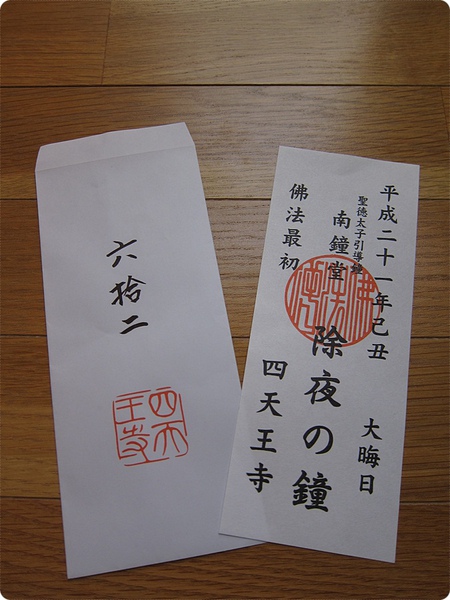 六拾二
四天
王寺
平成二十一年己丑
大晦日
聖徳太子引導鐘
南鐘堂
除夜の鐘
佛法最初
四天王寺